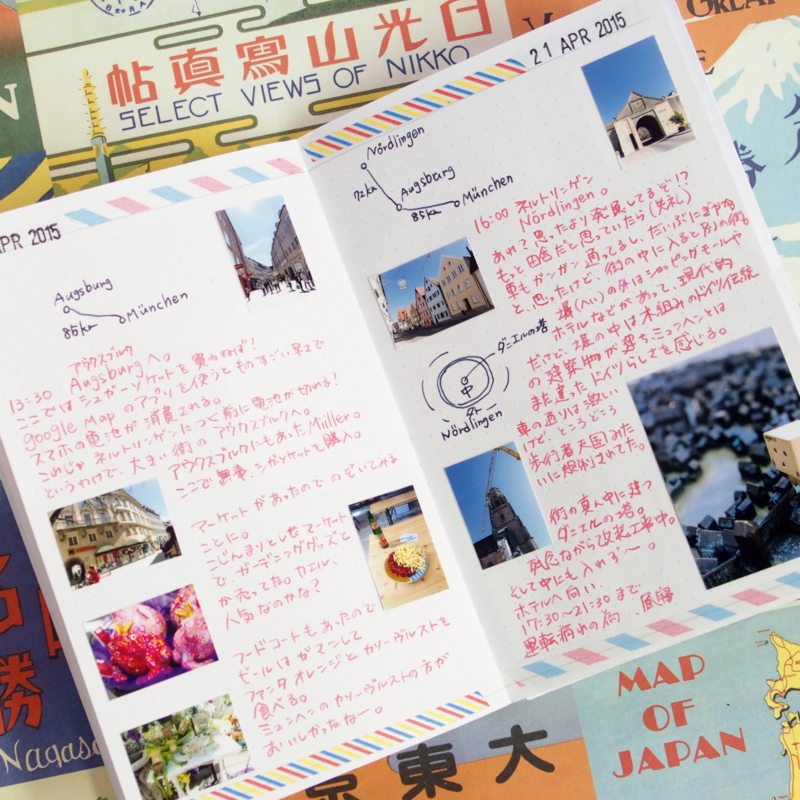 帖真寫山光日
SELECT VIEWS OF NIKKO
APR 2015
Augsburg
85km
München
アウクスブルク
13:30 Augsburgへ。
ここではシュガーソケットを買わねば!
google Mapのアプリを使うとものすごい早さで
スマホの電池が消費される。
これじゃネルトリンゲンにつく前に電池が切れる!
というわけで、大きい街のアウクスブルクへ。
アウクスブルクにもあったMüller。
ここで無事、シガソケットを購入。
マーケットがあったのでのぞいてみる
ことに。
こじんまりとしたマーケット
で、ガーデニンググッズと
か売ってた。カエル、
人気なのかな?
フードコートもあったので
ビールはガマンして
ファンタオレンジとカリーヴルストを
食べる。
ミュンヘンのカリーヴルストの方が
おいしかったなー。
21 APR 2015
Nördlingen
72km
Augsburg
85km
München
16:00 ネルトリンゲン
Nördlingen。
あれ?思ったより発展してるぞ!?
もっと田舎だと思っていたら(失礼)
車もガンガン通ってるし、だいぶにぎやか
と、思ったけど、街の中に入ると別の街
塀(へい)の外はショッピングモールや
ホテルなどがあって、現代的
だけど、塀の中は木組みのドイツ伝統
の建築物が建ち、ミュンヘンとは
また違ったドイツらしさを感じる。
ダニエルの塔
中
外
Nördlingen
車の通りは激しい
けど、ところどころ
歩行者天国みた
いに規制されてた。
街の真ん中に建つ
ダニエルの塔。
残念ながら改装工事中。
として中にも入れず〜。
ホテルへ向い、
17:30〜21:30まで
運転疲れの為、昼寝
名
勝
Nagasa
京東大
MAP
OF
JAPAN